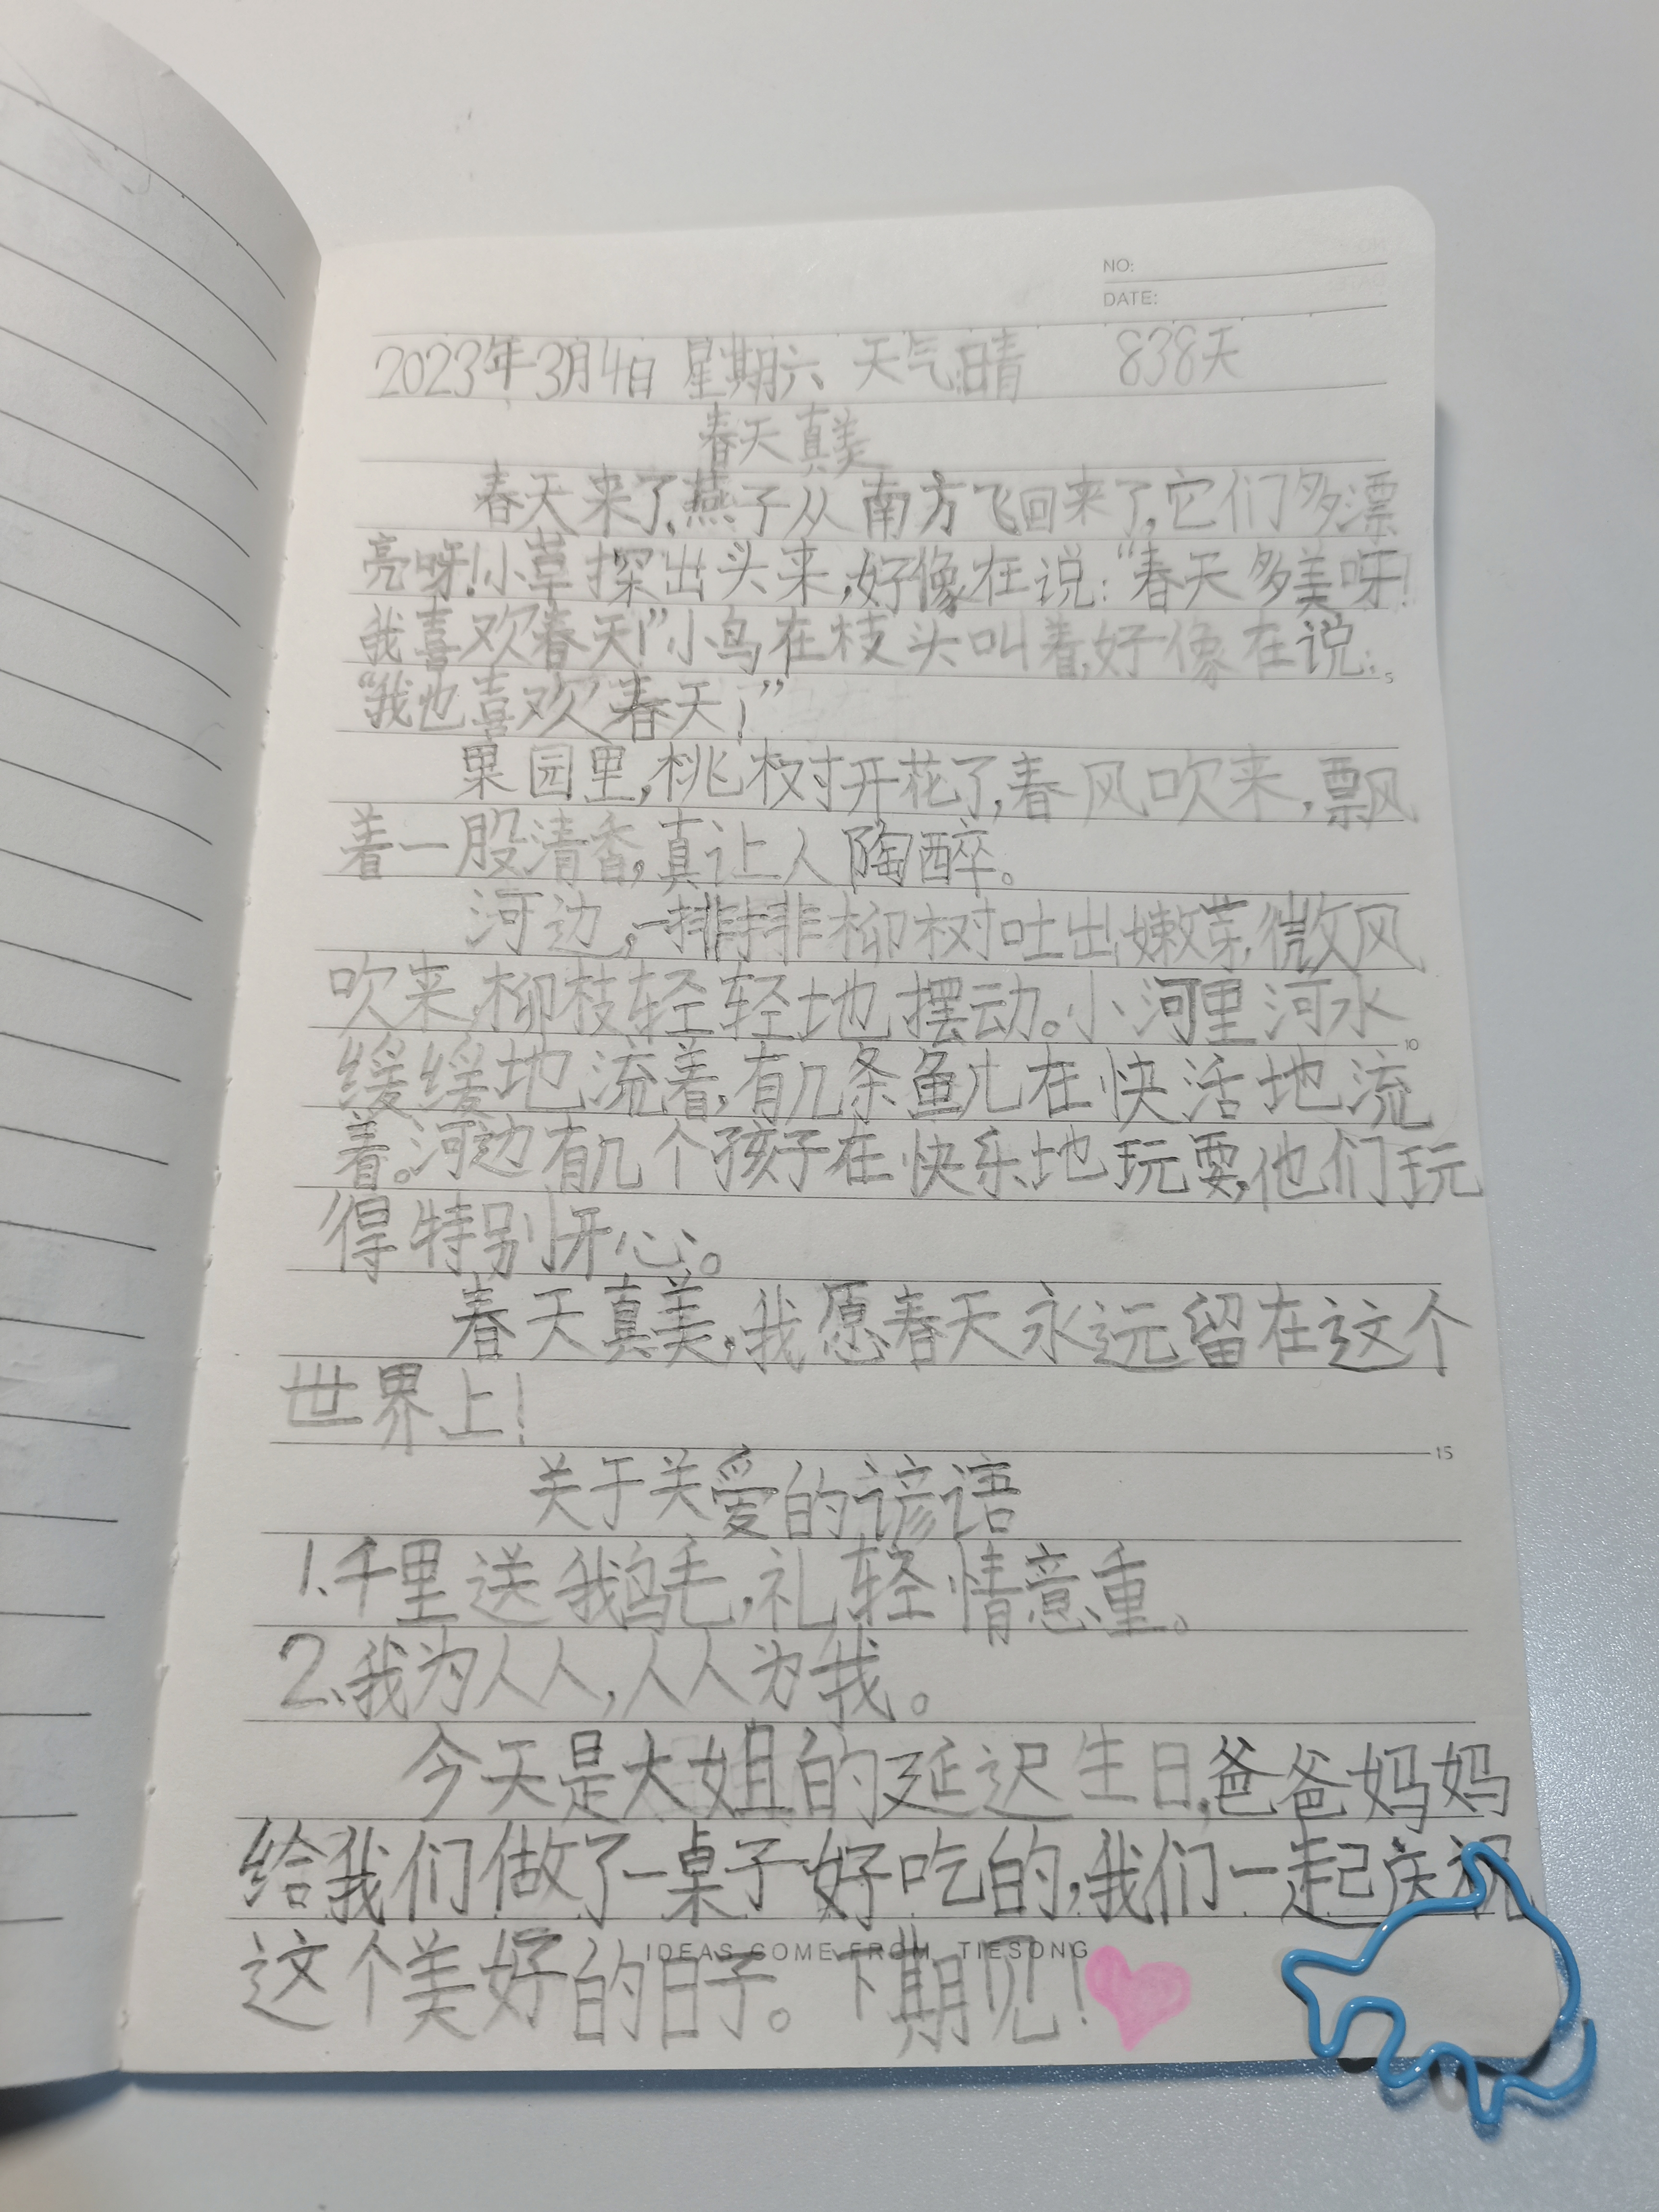 NO:
DATE:
2023年3月4日 星期六 天气晴 838天
春天真美
春天来了,燕子从南方飞回来了,它们多漂
亮呀!小草探出头来,好像在说:“春天多美呀!
我喜欢春天!”小鸟在枝头叫着,好像在说:
“我也喜欢春天!”
果园里,桃树开花了,春风吹来,飘
着一股清香,真让人陶醉。
河边,一排排柳树吐出嫩芽,微风
吹来,柳枝轻轻地摆动。小河里河水
缓缓地流着,有几条鱼儿在快活地流
着。河边有几个孩子在快乐地玩耍,他们玩
得特别开心。
春天真美,我愿春天永远留在这个
世界上!
关于关爱的谚语
1.千里送鹅毛,礼轻情意重。
2.我为人人,人人为我。
今天是大姐的延迟生日,爸爸妈妈
给我们做了一桌子好吃的,我们一起庆祝
这个美好的日子。下期见!
IDEAS COME FROM TIESONG
5
10
15